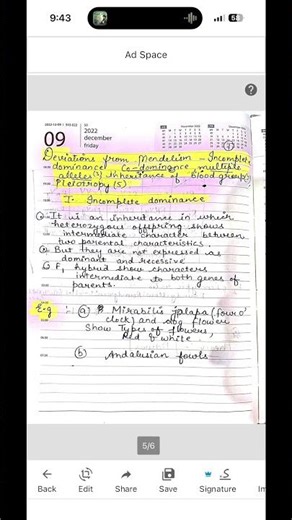 9:43
58
Ad Space
?
09
2022
december
friday
Deviations from Mendelism - Incomplete
dominance Co-dominance multiple
alleles Inheritance of Blood groups
Pleiotropy (5)
I. Incomplete dominance
It is an inheritance in which
heterozygous offspring shows
intermediate character between
two parental characteristics.
But they are not expressed as
dominant and recessive
F1 hybrid show characters
intermediate to both genes of
parents.
E.g (a) Mirabilis jalapa (four o'
clock) and dog flower
Show Types of flowers,
Red & white.
(b) Andalusian fowls
5/6
Back
Edit
Share
Save
Signature
Im